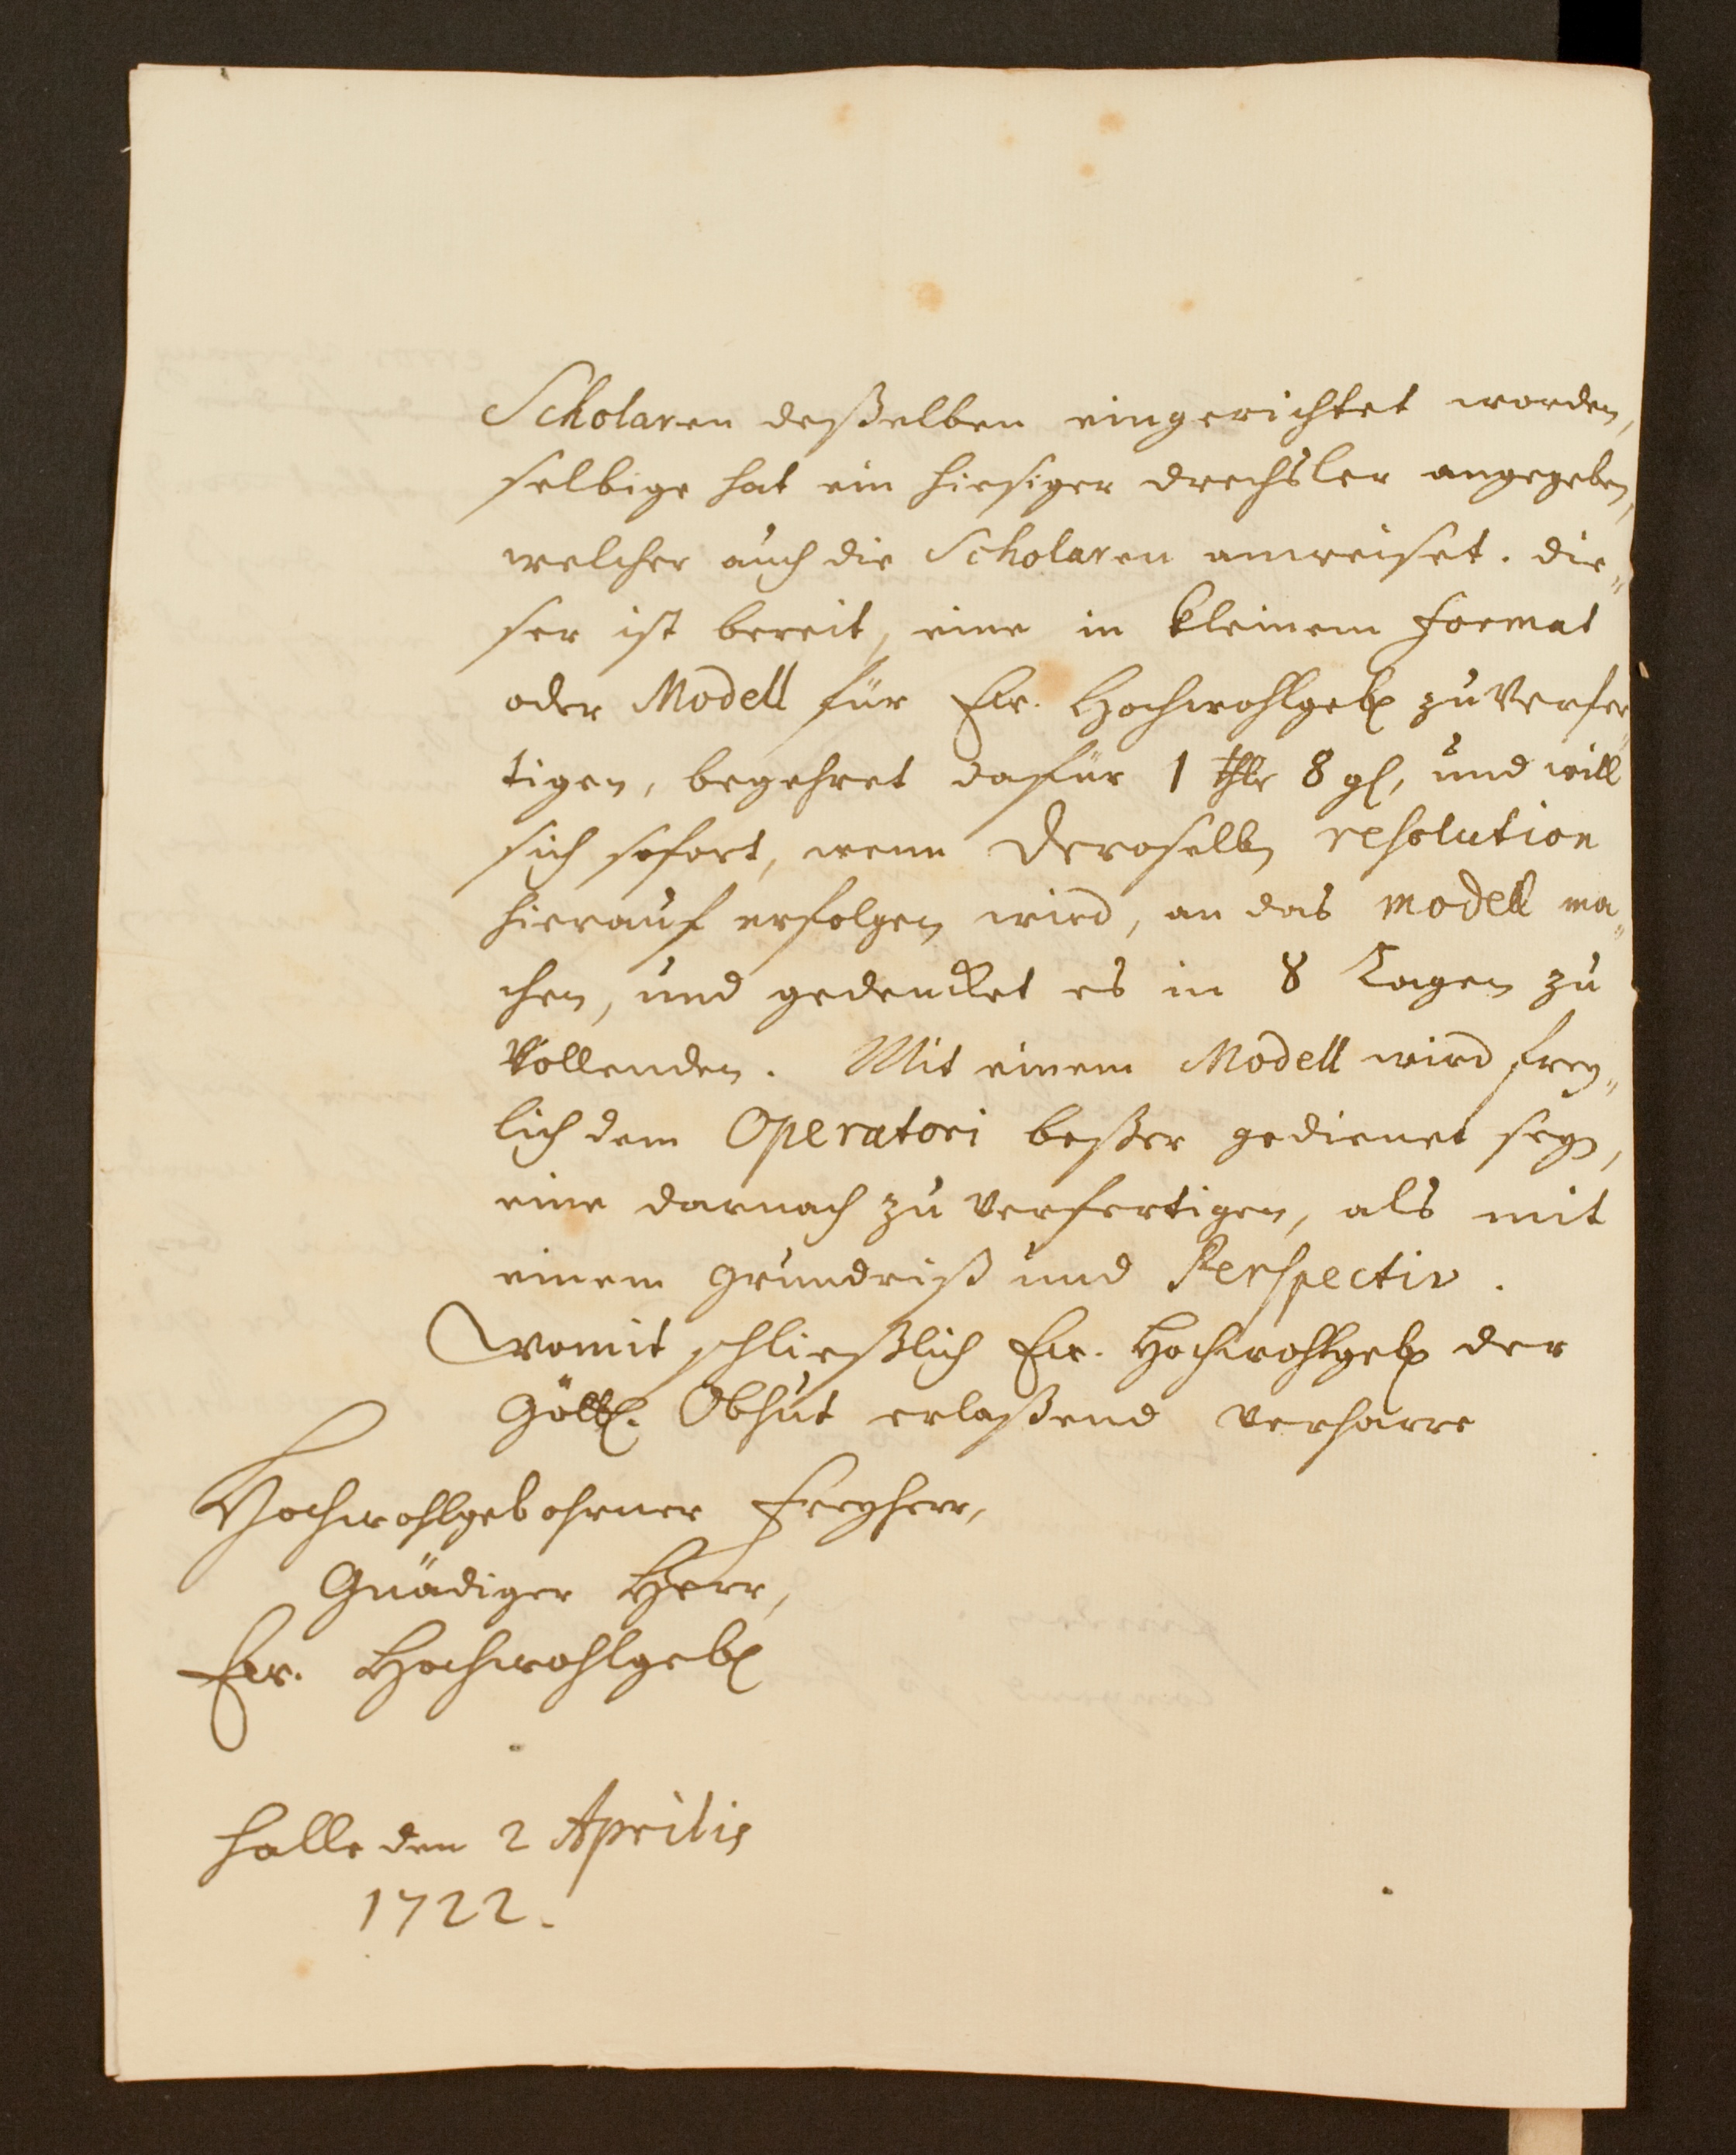 Scholaren deßelben eingerichtet worden,
selbige hat ein hiesiger drechsler angegeben,
welcher auch die Scholaren anweiset. die„
ser ist bereit, eine in kleinem format
oder Modell für Ew. Hochwohlgeb. zu verfer„
tigen, begehret dafür 1 thlr 8 gl, und will
sich sofort, wenn Deroselben resolution
hierauf erfolgen wird, an das modell ma„
chen, und gedencket es in 8 Tagen zu
vollenden. Mit einem Modell wird frey„
lich dem Operatori beßer gedienet seyn,
eine darnach zu verfertigen, als mit
einem grundriß und Perspectiv.
Womit schließlich Ew. Hochwohlgeb. der
Göttl. Obhut erlaßend verharre
Hochwohlgebohrner Freyherr,
Gnädiger Herr,
Ew. Hochwohlgeb.
Halle den 2 Aprilis
1722.